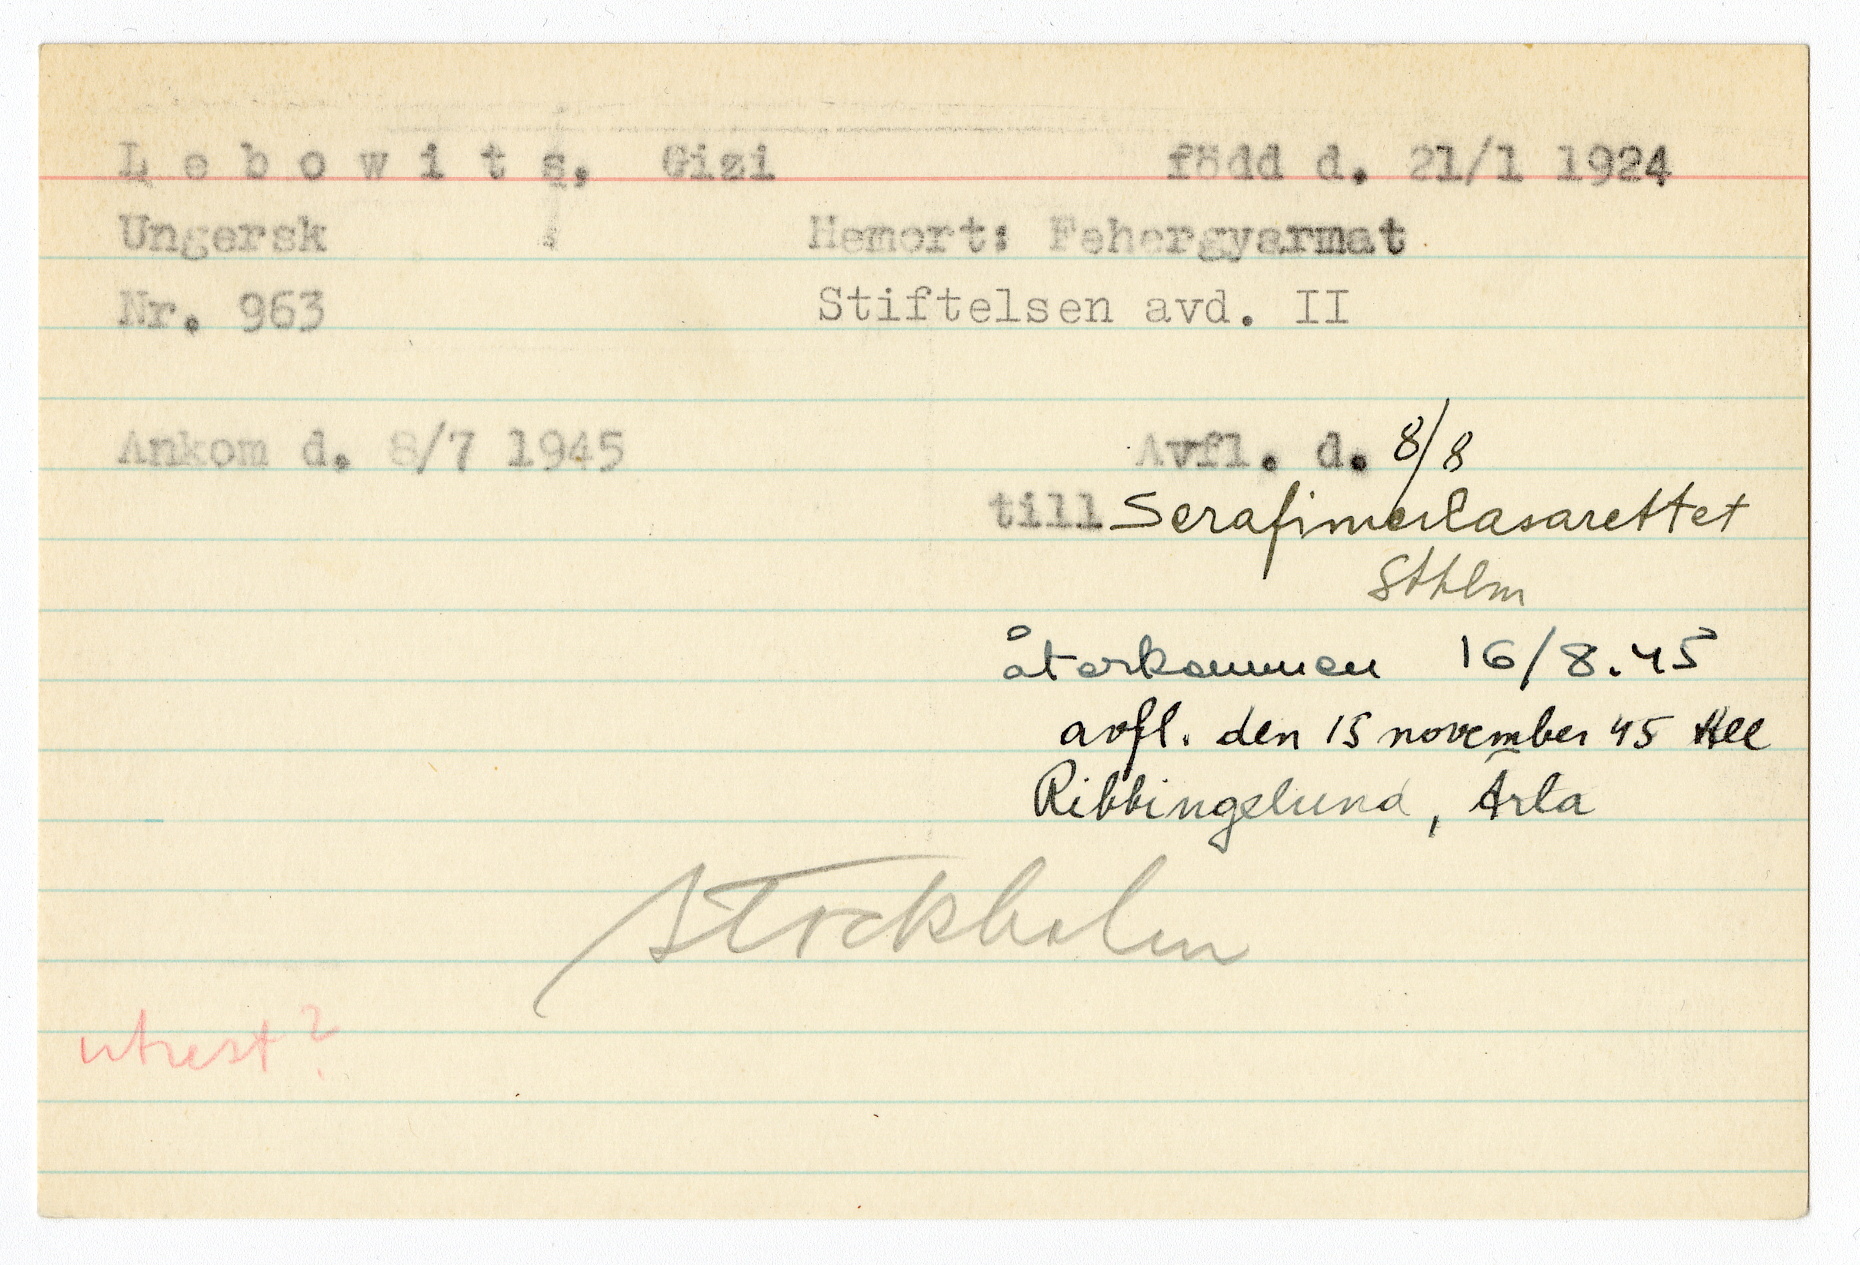 L e b o w i t s, Gizi född d. 21/1 1924
Ungersk Hemort: Fehergyarmat
Nr. 963 Stiftelsen avd. II
Ankom d. 8/7 1945 Avfl. d. 8/8
till Serafimerlasarettet
Sthlm
återkommen 16/8.45
avfl. den 15 november 45 till
Ribbingelund, Ärla
Stockholm
utrest?